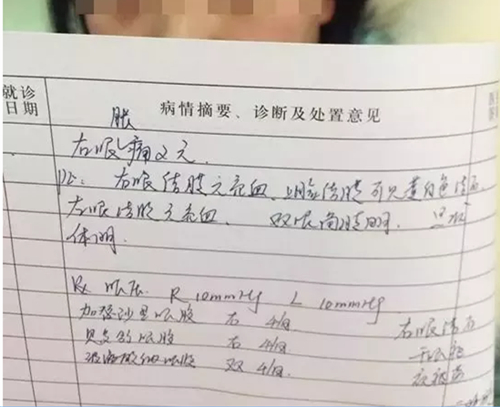 就诊
日期
病情摘要、诊断及处置意见
胀
右眼痛2天.
PE: 右眼结膜充血, 上睑结膜可见黄白色结石
左眼结膜无充血, 双眼角膜明,
体明.
Rx 眼压 R 10mmHg L 10mmHg
加替沙星眼胶 右 4/日 右眼结石
贝复舒眼胶 右 4/日
玻璃酸钠 双 4/日